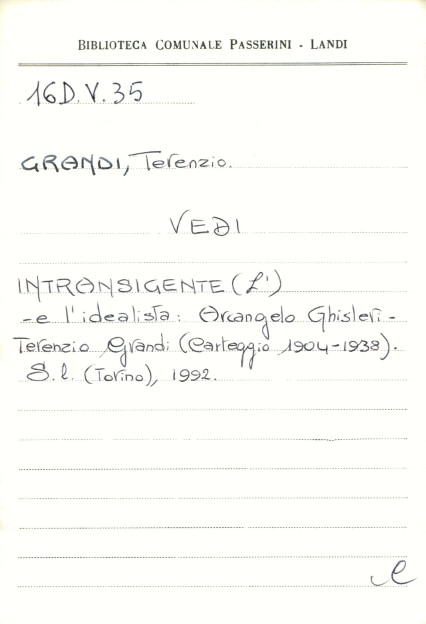 BIBLIOTECA COMUNALE PASSERINI - LANDI
16D.V.35
GRANDI, Terenzio.
VEDI
INTRANSIGENTE (L')
- e l'idealista: Arcangelo Ghisleri -
Terenzio Grandi (Carteggio 1904-1938).
S.l. (Torino), 1992.